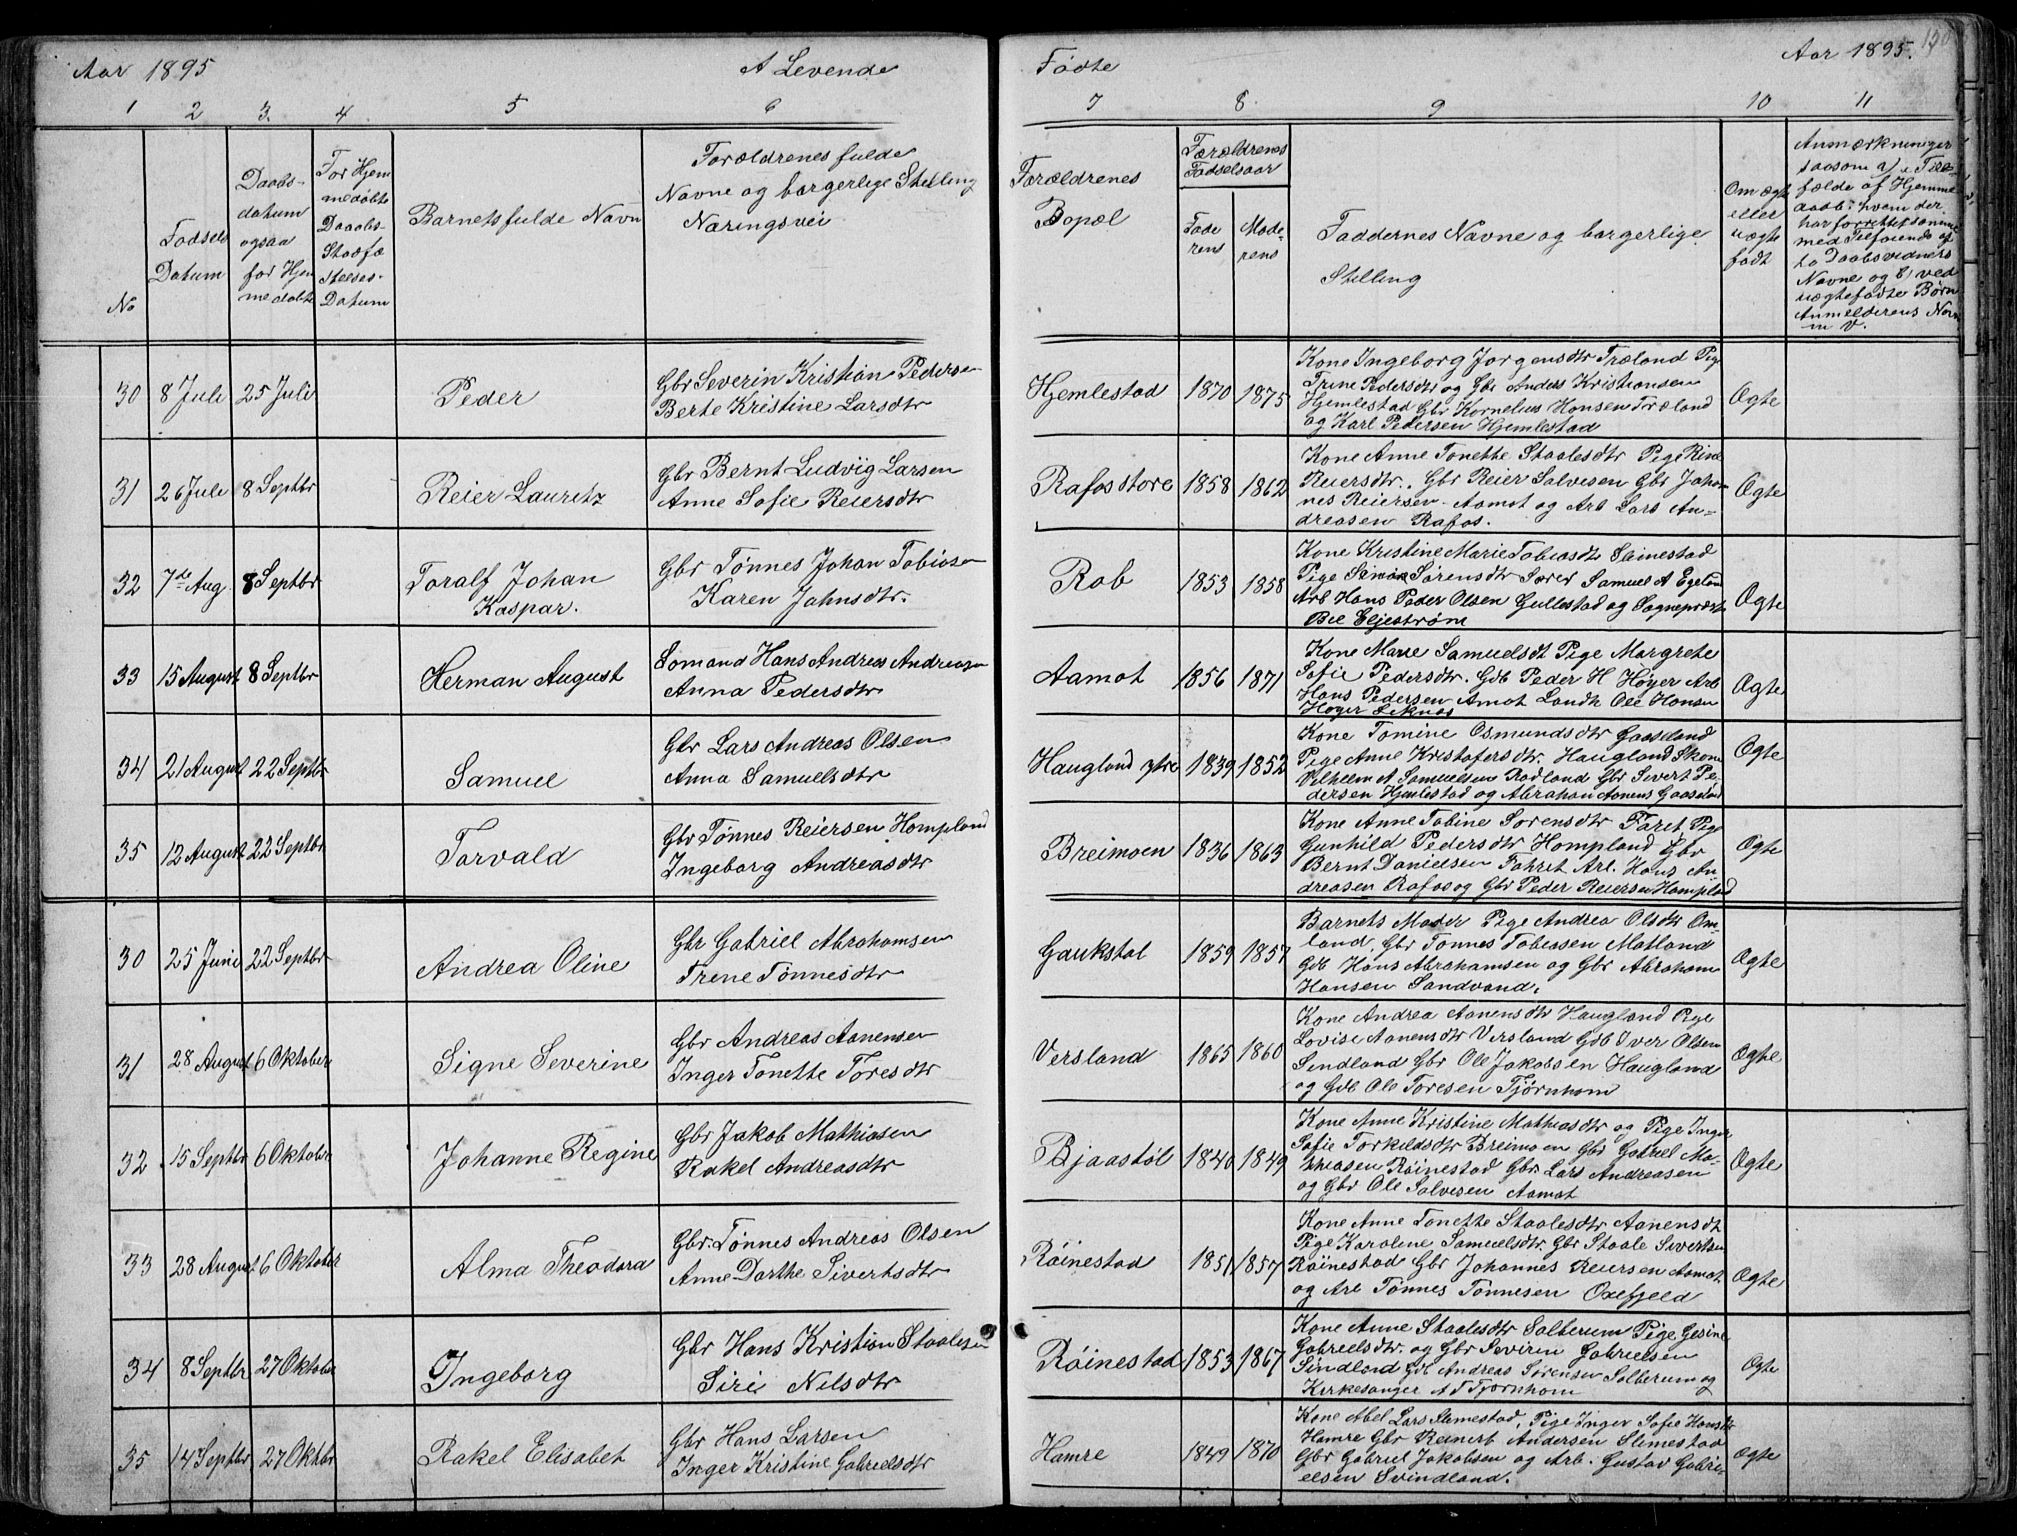 Aar 1895
A Levende
Fødte
Aar 1895.
1 2 3. 4 5 6 7 8. 9 10 11
No
Fødsels
Datum
Daabs-
datum
ogsaa
for Hjem
medøbte
For Hjem
medøbte
Daaabs-
Stadfæ
stelses-
Datum
Barnets fulde Navn
Forældrenes fulde
Navne og borgerlige Stilling
Næringsvei
Forældrenes
Bopæl
Forældrenes
Fødselsaar
Fade
rens
Mode
rens
Faddernes Navne og borgerlige
Stilling
Om ægte
eller
uægte
født
Anmærkninger
saasom a) i Til-
fælde af Hjemme
daab: hvem der
har forrettet samme
med Tilføiende af
to Daabsvidners
Navne og b) ved
uægtefødte Børn
Anmelderens Navn
m V.
30 8 Juli 25 Juli Peder
Gbr Severin Kristian Pedersen
Berte Kristine Larsdtr
Hjemlestad 1870 1875
Kone Ingeborg Jørgensdtr Træland Pige
Trine Pedersdtr og Gbr Anders Kristiansen
Hjemlestad Gbr Kornelius Hansen Træland
og Karl Pedersen Hjemlestad
Ægte
31 26 Juli 8 Septbr Reier Lauritz
Gbr Bernt Ludvig Larsen
Anne Sofie Reiersdtr
Rafos store 1858 1862
Kone Anne Tonette Staalesdtr Pige Rine
Reiersdtr. Gbr Reier Salvesen Gbr Johan
nes Reiersen Aamot og Arb Lars An-
dreasen Rafos.
Ægte
32 7de Aug. 8 Septbr Toralf Johan
Kaspar.
Gbr Tønnes Johan Tobiasen
Karen Jahnsdtr.
Rob 1853 1858
Kone Kristine Marie Tobiasdtr Slimestad
Pige Sørensdtr Samuel A Egeland
Arb Hans Peder Olsen Gullestad og Sognepræst
Eljestrøm
Ægte
33 15 August 8 Septbr Herman August
Sømand Hans Andreas Andreasen
Anna Pedersdtr
Aamot 1856 1871
Kone Marie Samuelsdt Pige Margrete
Sofie Pedersdtr. Gdb Peder H Høyer Arb
Hans Pedersen Amot Landh Ole Hansen
Høyer Leknæs
Ægte
34 21 August 22 Septbr Samuel
Gbr Lars Andreas Olsen
Anna Samuelsdtr
Haugland ytre 1839 1852
Kone Tomine Osmundsdtr Gaaseland
Pige Anne Kristofersdtr. Haugland Skom
Vilhelm A Samuelsen Rødland Gbr Sivert Pe-
dersen Hjemlestad og Abraham Aanens Gaaseland
Ægte
35 12 August 22 Septbr Torvald
Gbr Tønnes Reiersen Hompland
Ingeborg Andreasdtr
Breimoen 1836 1863
Kone Anne Tobine Sørensdtr Faret Pige
Gunhild Pedersdtr Hompland Gbr
Bernt Danielsen Fahret Arb. Hans An
dreasen Rafos og Gbr Peder Reiersen Hompland
Ægte
30 25 Juni 22 Septbr Andrea Oline
Gbr Gabriel Abrahamsen
Trene Tønnesdtr
Gaukstøl 1859 1857
Barnets Moder Pige Andrea Olsdtr Om-
land, Gbr Tønnes Tobiassen Motland
Gdb Hans Abrahamsen og Gbr Abraham
Hansen Sandvand.
Ægte
31 28 August 6 Oktober Signe Severine
Gbr Andreas Aanensen
Inger Tonette Toresdtr
Versland 1865 1860
Kone Andrea Aanensdtr Haugland Pige
Lovise Aanensdtr Versland Gdb Iver Olsen
Sindland Gbr Ole Jakobsen Haugland
og Gdb Ole Toresen Tjørnhom
Ægte
32 15 Septbr 6 Oktober Johanne Regine
Gbr Jakob Mathiasen
Rakel Andreasdtr
Bjaastøl 1840 1849
Kone Anne Kristine Mathiasdtr og Pige Inger
Sofie Torkildsdtr Breimoen Gbr Gabriel Ma-
thiasen Røinestad Gbr Lars Andreasen
og Gbr Ole Salvesen Aamot
Ægte
33 28 August 6 Oktober Alma Theodora
Gbr. Tønnes Andreas Olsen
Anne Dorthe Sivertsdtr
Røinestad 1851 1857
Kone Anne Tonette Staalesdtr Aanensdt
Pige Karoline Samuelsdtr. Gbr Staale Sivertsen
Røinestad Gbr Johannes Reiersen Aamot
og Arb Tønnes Tønnesen Oxefjeld
Ægte
34 8 Septbr 27 Oktober Ingeborg
Gbr Hans Kristian Staalesen
Siri Nilsdtr
Røinestad 1853 1867
Kone Anne Staalesdtr Solberum Pige Gesine
Gabrielsdtr. og Gbr Soviren Gabrielsen
Sindland Gdb Andreas Sørensen Solberum og
Kirkesanger A T Tjørnhom
Ægte
35 14 Septbr 27 Oktbr Rakel Elisabet
Gbr Hans Larsen
Inger Kristine Gabrielsdtr
Hamre 1849 1870
Kone Abel Lars Slimestad, Pige Inger Sofie Hansdtr
Hamre Gbr Reinert Andersen Slimestad
Gbr Gabriel Jakobsen og Arb. Gustav Gabri-
elsen Svindland.
Ægte